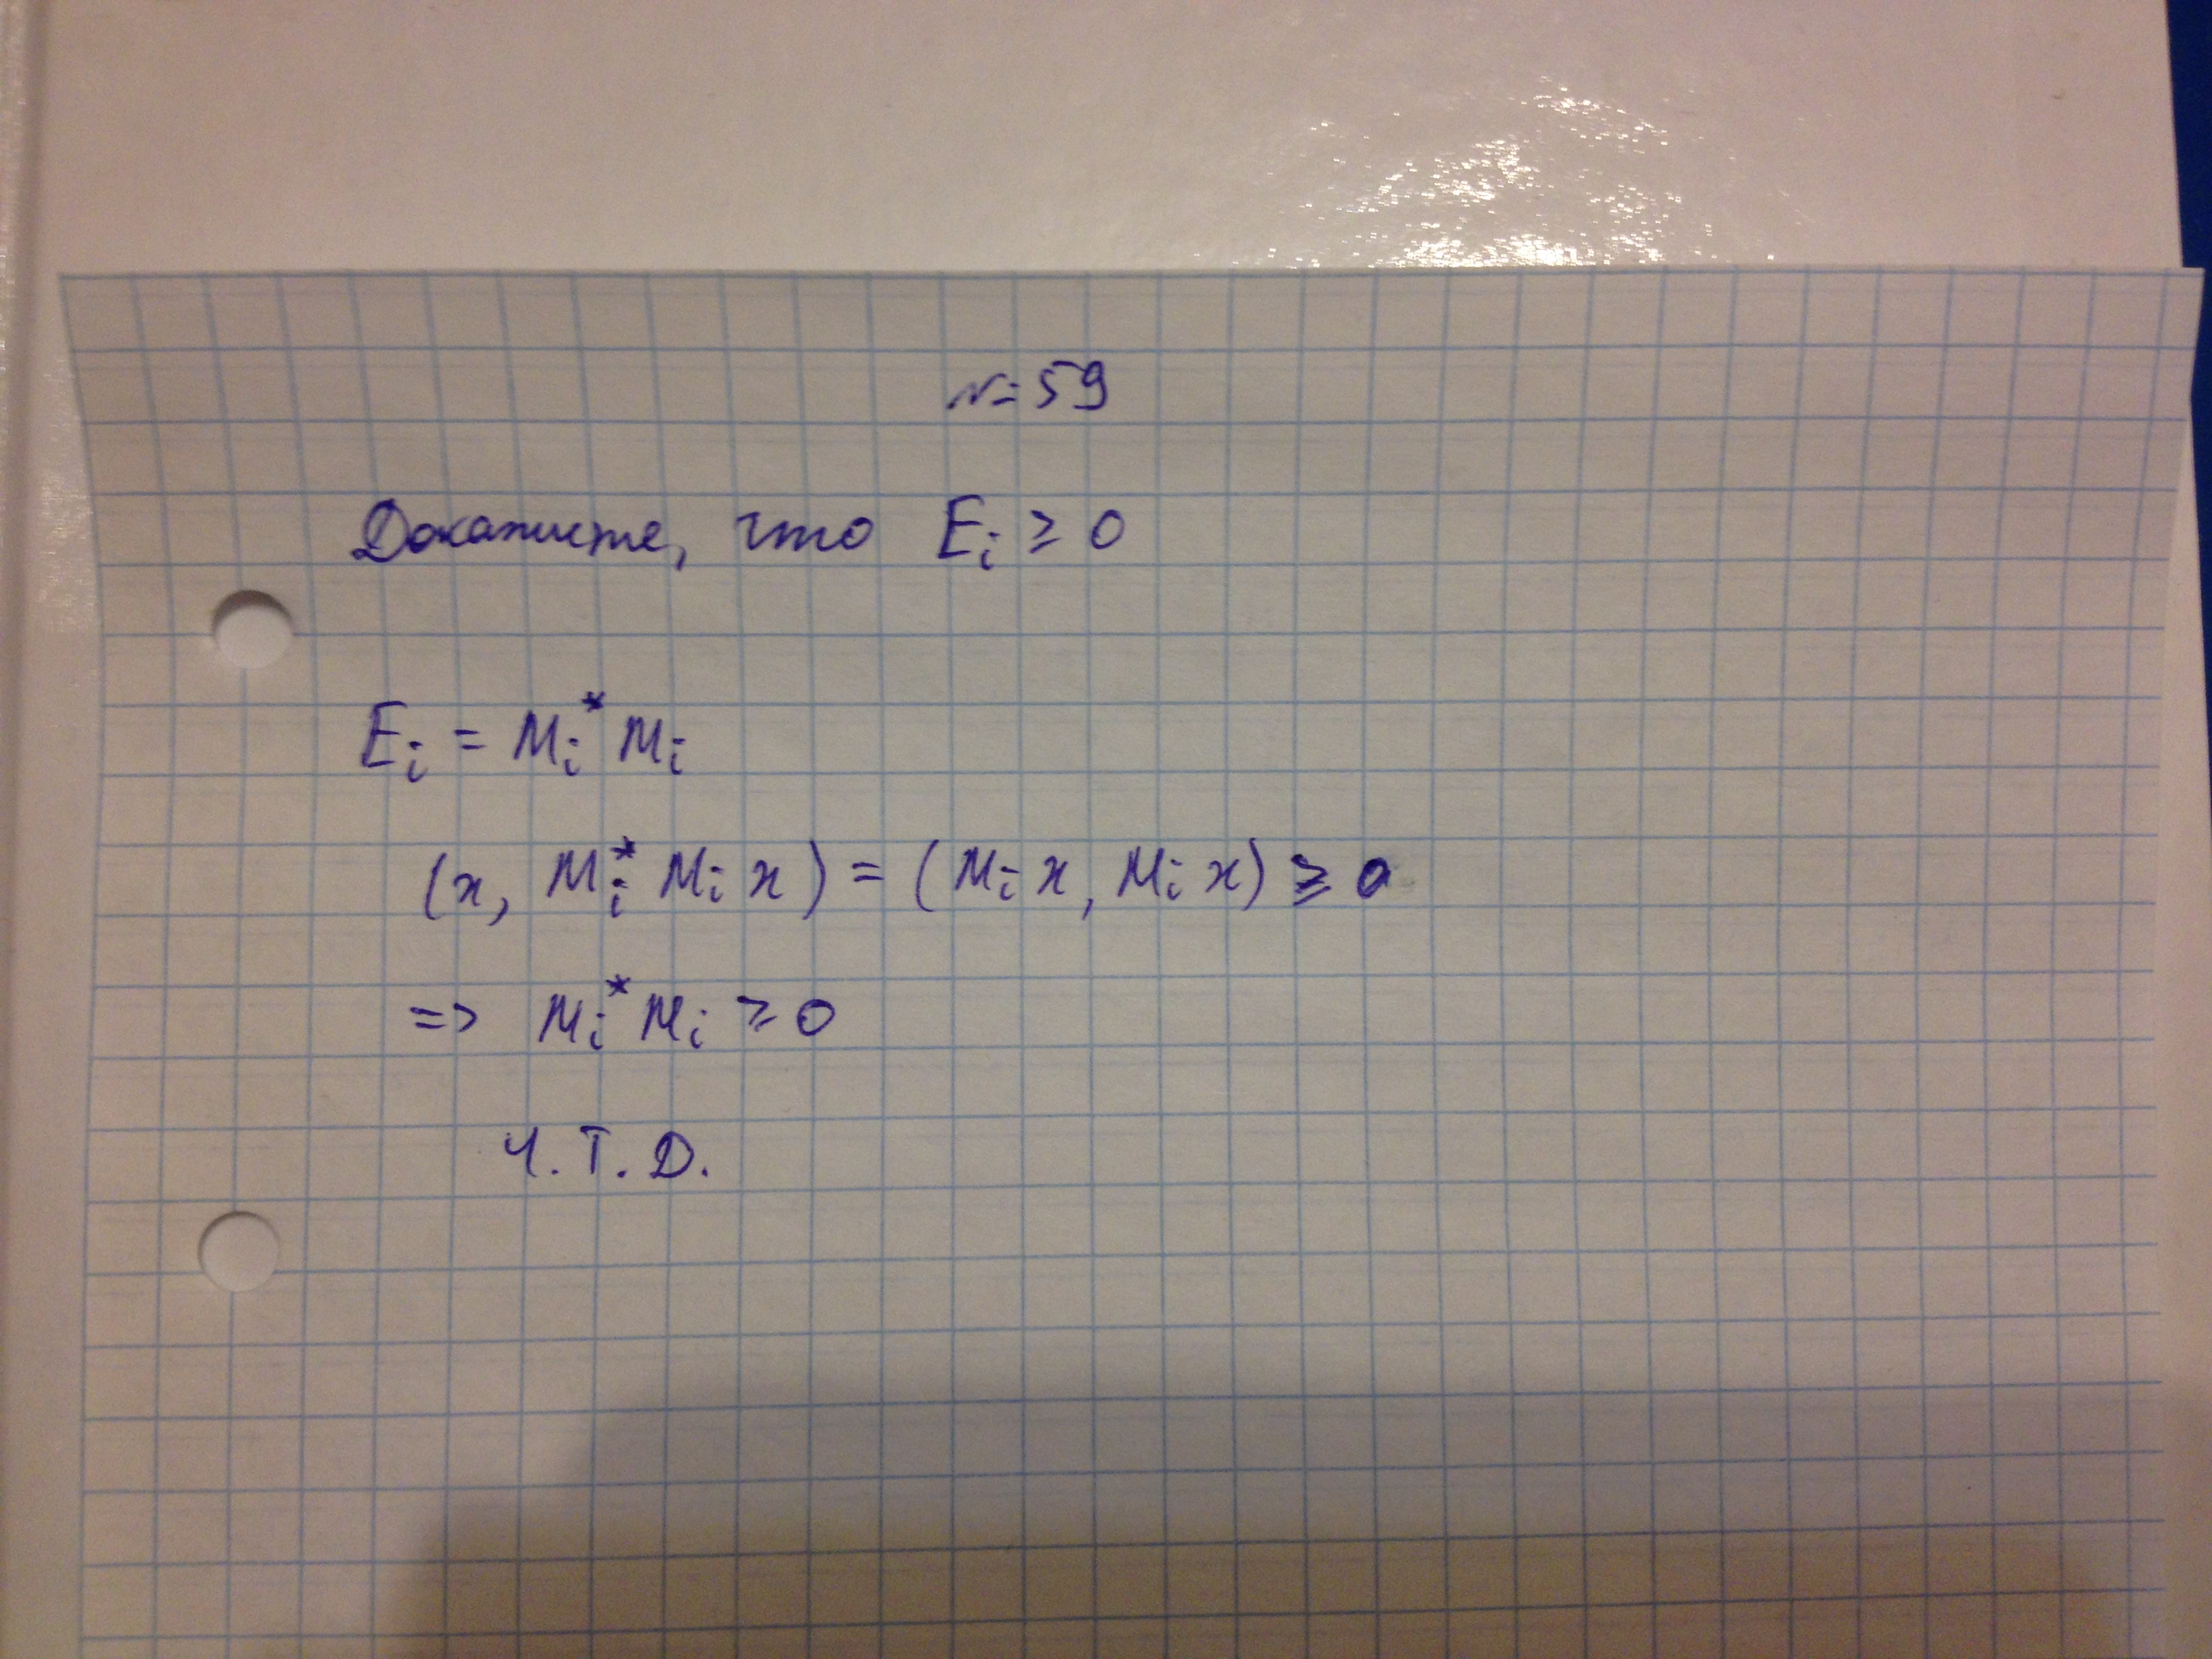 № 59
Докажите, что Eᵢ ≥ 0
Eᵢ = Mᵢ* Mᵢ
(x, Mᵢ* Mᵢ x) = (Mᵢ x, Mᵢ x) ≥ 0
=> Mᵢ* Mᵢ ≥ 0
Ч.Т.Д.